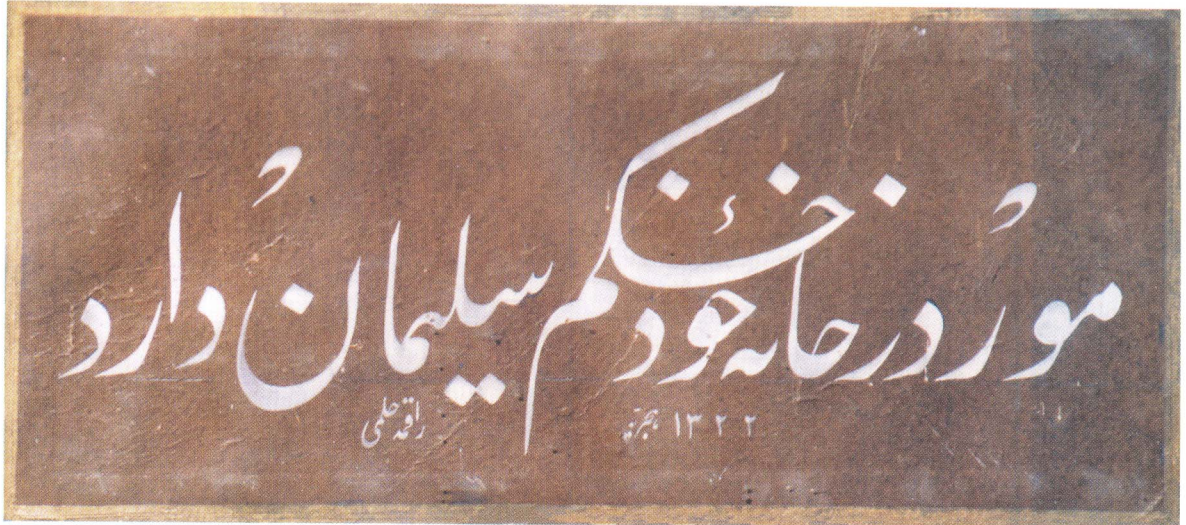 مور در خانهٔ خود حکم سلیمان دارد
١٣٢٢ هجریه
راقمه حلمی